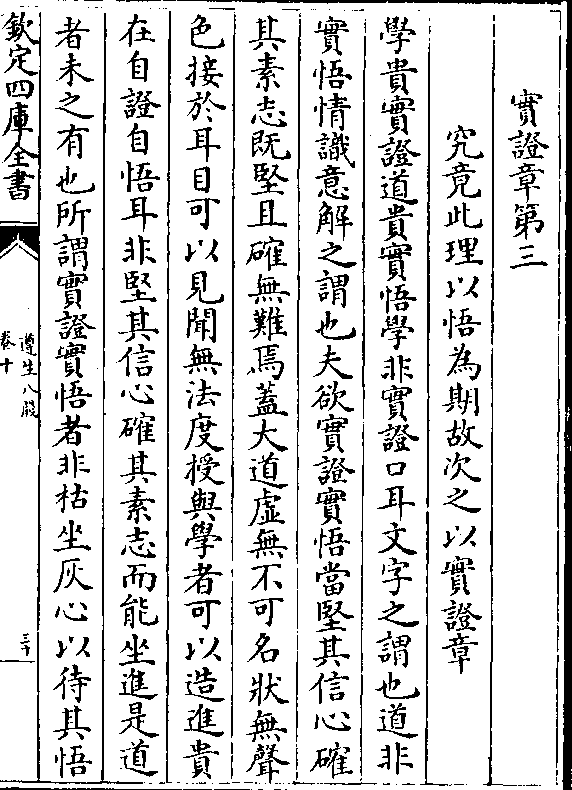 實證章第三
究竟此理以悟為期故次之以實證章
學貴實證道貴實悟學非實證口耳文字之謂也道非
實悟情識意解之謂也夫欲實證實悟當堅其信心確
其素志既堅且確無難焉蓋大道虛無不可名狀無聲
色接於耳目可以見聞無法度授與學者可以造進貴
在自證自悟耳非堅其信心確其素志而能坐進是道
者未之有也所謂實證實悟者非枯坐灰心以待其悟
欽定四庫全書
遵生八牋
卷十
三十